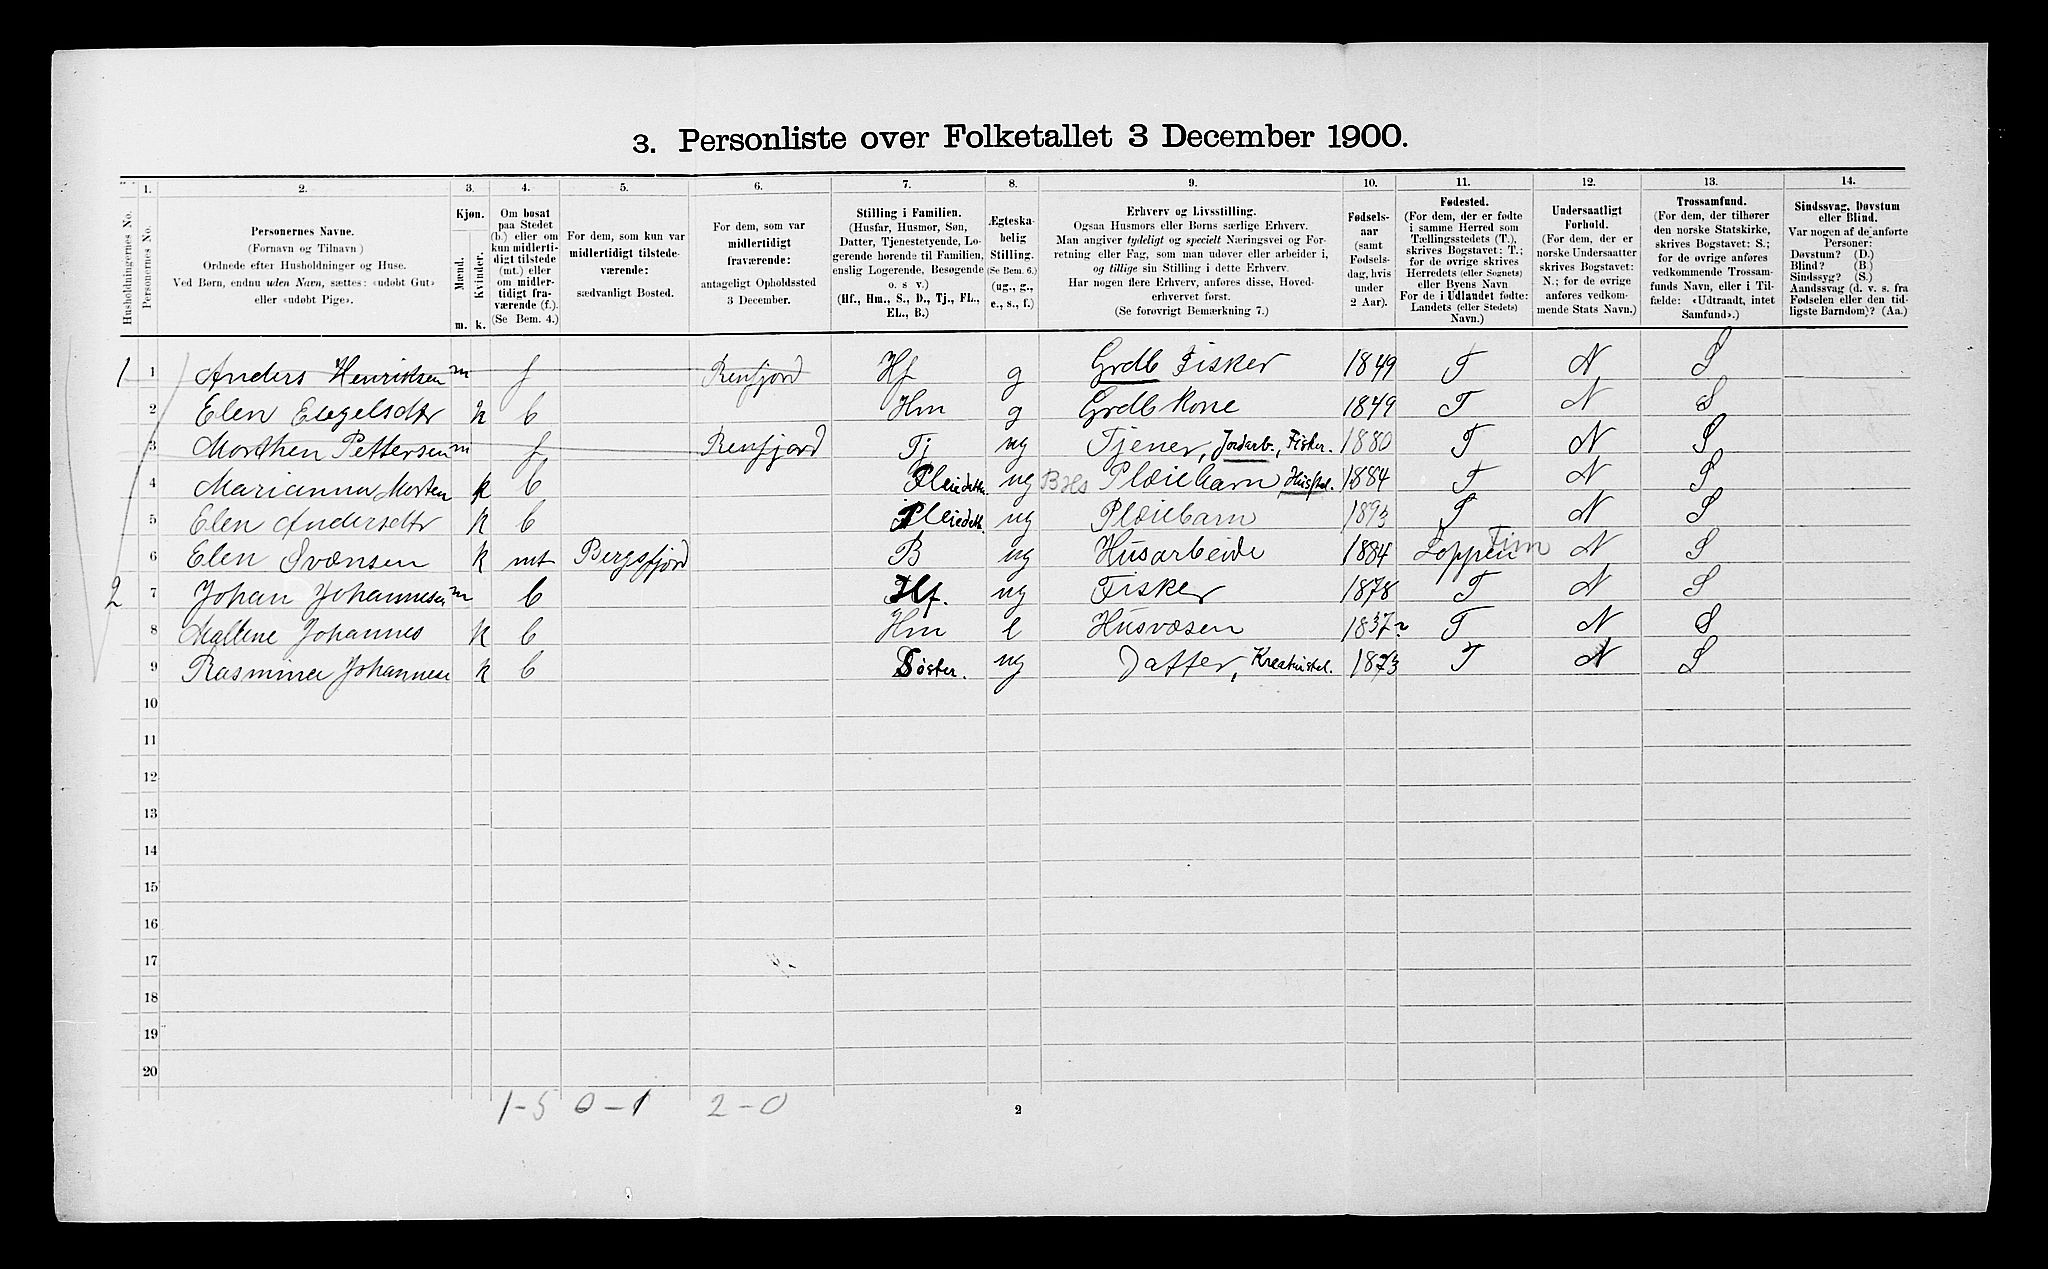 3. Personliste over Folketallet 3 December 1900.
1. 2. 3. 4. 5. 6. 7. 8. 9. 10. 11. 12. 13. 14.
Husholdningernes No.
Personernes No.
Personernes Navne.
(Fornavn og Tilnavn)
Ordnede efter Husholdninger og Huse.
Ved Børn, endnu uden Navn, sættes: «udøbt Gut»
eller «udøbt Pige».
Kjøn.
Mænd. Kvinder.
m. k.
Om bosat
paa Stedet
(b.) eller om
kun midlerti-
digt tilstede
(mt.) eller
om midler-
tidigt fra-
værende (f.).
(Se Bem. 4.)
For dem, som kun var
midlertidigt tilstede-
værende:
sædvanligt Bosted.
For dem, som var
midlertidigt
fraværende:
antageligt Opholdssted
3 December.
Stilling i Familien.
(Husfar, Husmor, Søn,
Datter, Tjenestetyende, Lo-
gerende hørende til Familien,
enslig Logerende, Besøgende
o. s. v.)
(Hf., Hm., S., D., Tj., FL.,
EL., B.)
Ægteska-
belig
Stilling.
(Se Bem. 6.)
(ug., g.,
e., s., f.)
Erhverv og Livsstilling.
Ogsaa Husmors eller Børns særlige Erhverv.
Man angiver tydeligt og specielt Næringsvei og For-
retning eller Fag, som man udøver eller arbeider i,
og tillige sin Stilling i dette Erhverv.
Har nogen flere Erhverv, anføres disse, Hoved-
erhvervet først.
(Se forøvrigt Bemærkning 7.)
Fødsels-
aar
(samt
Fødsels-
dag, hvis
under
2 Aar).
Fødested.
(For dem, der er fødte
i samme Herred som
Tællingsstedets (T.),
skrives Bogstavet: T.;
for de øvrige skrives
Herredets (eller Sognets)
eller Byens Navn
For de i Udlandet fødte:
Landets (eller Stedets)
Navn.)
Undersaatligt
Forhold.
(For dem, der er
norske Undersaatter
skrives Bogstavet:
N.; for de øvrige
anføres vedkom-
mende Stats Navn.)
Trossamfund.
(For dem, der tilhører
den norske Statskirke,
skrives Bogstavet: S.;
for de øvrige anføres
vedkommende Trossam-
funds Navn, eller i Til-
fælde: «Udtraadt, intet
Samfund».)
Sindssvag, Døvstum
eller Blind.
Var nogen af de anførte
Personer:
Døvstum? (D.)
Blind? (B.)
Sindssyg? (S.)
Aandssvag (d. v. s. fra
Fødselen eller den tid-
ligste Barndom)? (Aa.)
1 1 Anders Henriksen m f Renfjord Hf g Grdb Fisker 1849 T N S
2 Elen Engelsdtr k b Hm g Grdb Kone 1849 T N S
3 Morthen Pettersen m f Renfjord Tj ug Tjener, Jordarb., Fisker. 1880 T N S
4 Marianna Morten k b Pleiedatter. ug BHs Plæiebarn, Husstel. 1884 T N S
5 Elen Andersdtr k b Pleiedatt. ug Plæiebarn 1893 T N S
6 Elen Svænsen k mt Bergsfjord B ug Husarbeide 1884 Loppen Finm N S
2 7 Johan Johannesen m b Hf. ug Fisker 1878 T N S
8 Maltene Johannes k b Hm e Husvæsen 1837? T N S
9 Rasminea Johannese k b Søster. ug Datter, Kreaturstel. 1873 T N S
10
11
12
13
14
15
16
17
18
19
20
1-5 0-1 2-0
2